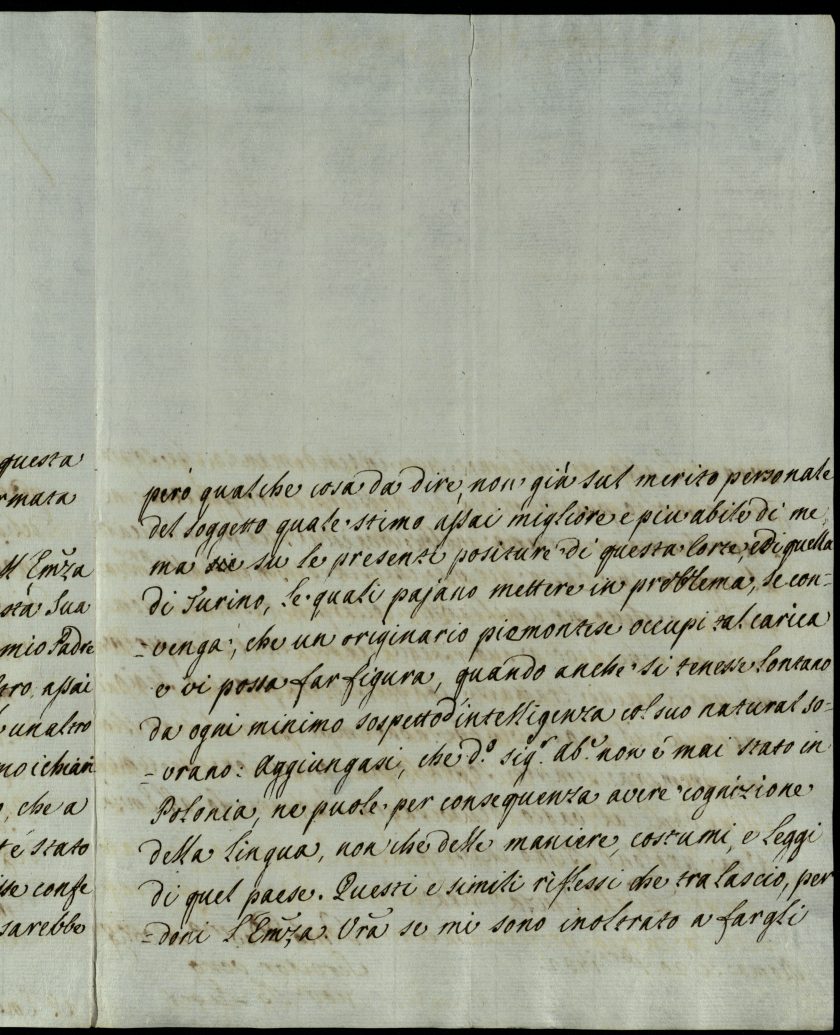 questa
rmata
ll' Em̃za
està Sua
mio Padre
tro, assai
un altro
, che a
t' é stato
sse confe
sarebbe
però qualche cosa da dire, non già sul merito personale
del soggetto quale stimo assai migliore e piu abile di me;
ma su le presenti positure di questa Corte, é di quella
di Turino, le quali pajano mettere in problema, se con=
=venga, che un originario piemontese occupi tal carica
e vi possa far figura, quando anche si tenesse lontano
da ogni minimo sospetto d'intelligenza col suo natural so=
=vrano: Aggiungasi, che d.º sig.r Ab.e non é mai stato in
Polonia, ne puole per consequenza avere cognizione
della lingua, non che delle maniere, costumi, e leggi
di quel paese. Questi e simili riflessi che tralascio, per
=doni l'Em̃za Vrã se mi sono inoltrato a fargli